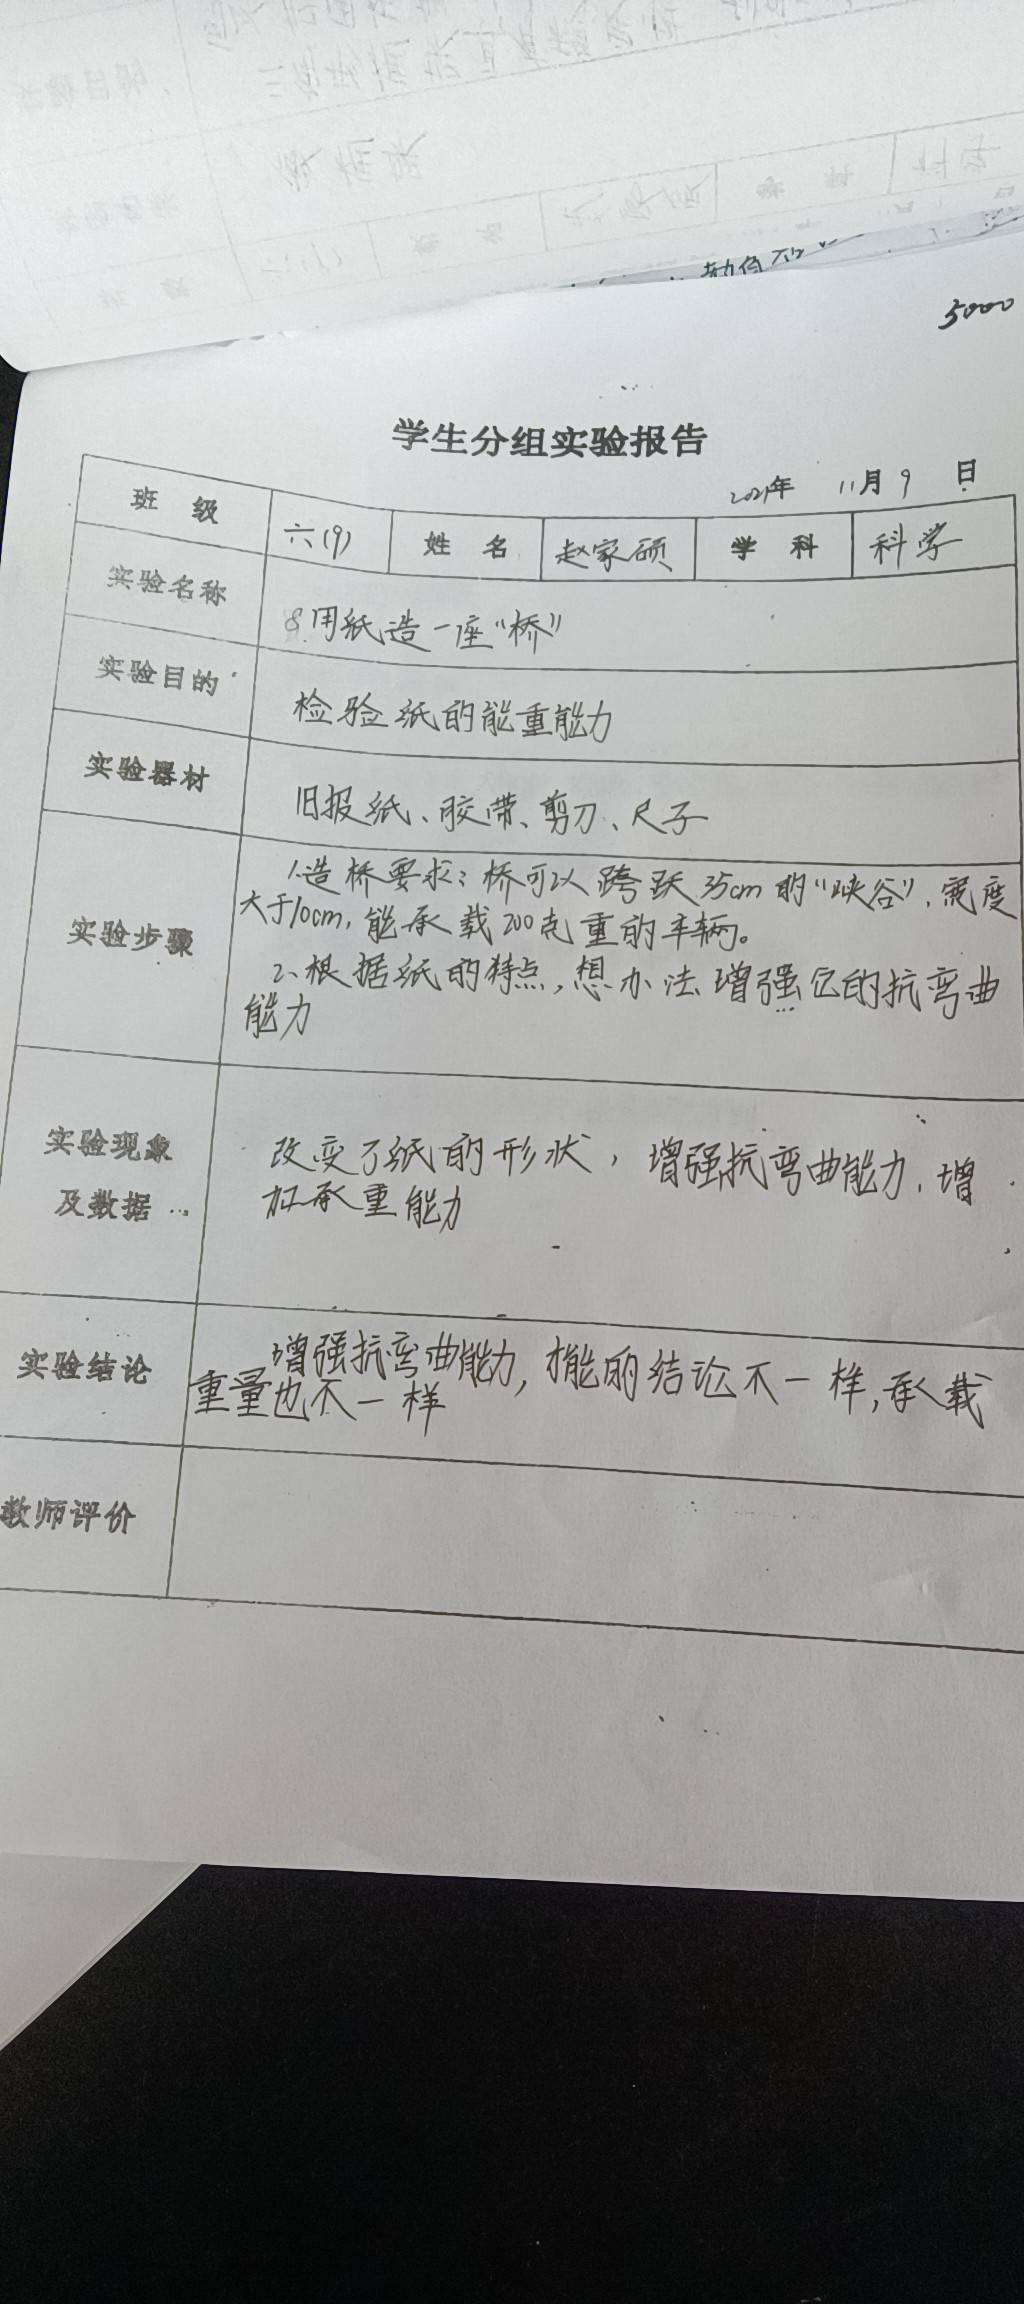 5000
学生分组实验报告
2021年 11月9日
班级 六(9) 姓名 赵家硕 学科 科学
实验名称 8.用纸造一座“桥”
实验目的 检验纸的能重能力
实验器材 旧报纸、胶带、剪刀、尺子
实验步骤
1.造桥要求：桥可以跨跃35cm的“峡谷”，宽度
大于10cm，能承载200克重的车辆。
2、根据纸的特点，想办法增强它的抗弯曲
能力
实验现象
及数据
改变了纸的形状，增强抗弯曲能力，增
加承重能力
实验结论
增强抗弯曲能力，才能的结论不一样，承载
重量也不一样
教师评价